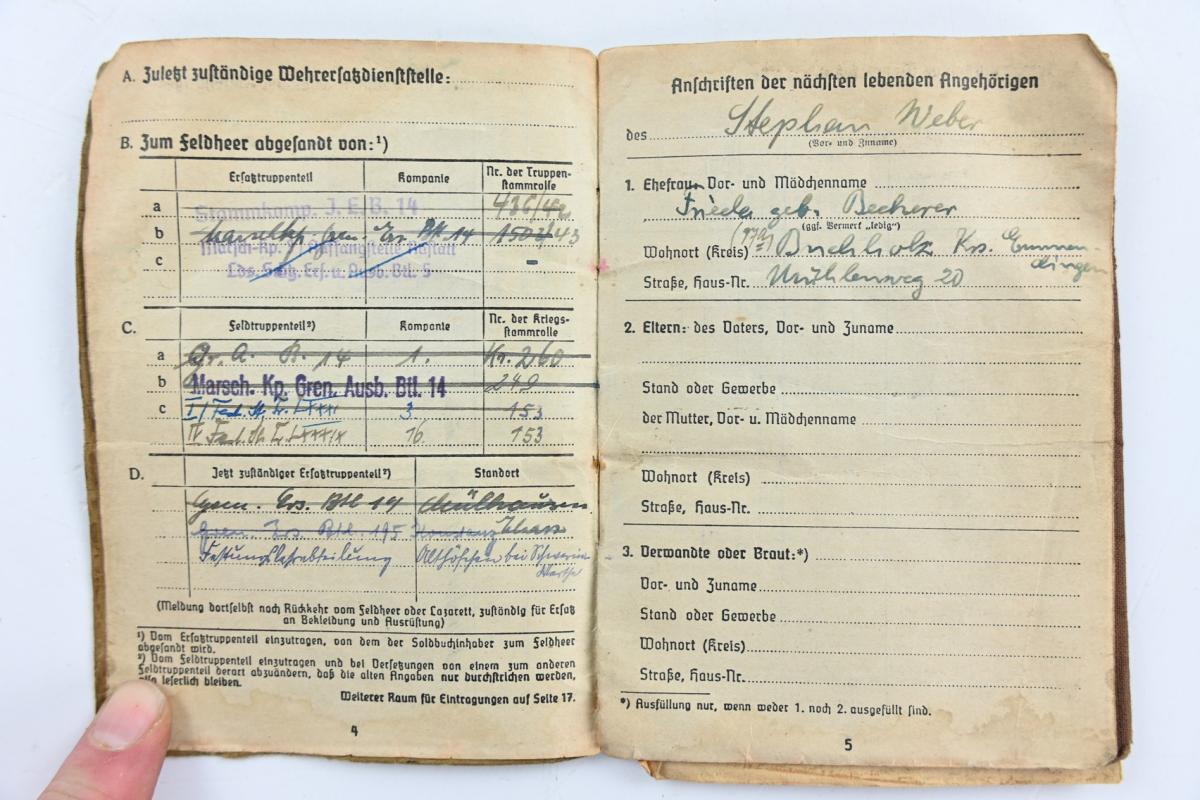 A. Zuletzt zuständige Wehrersatzdienststelle:
B. Zum Feldheer abgesandt von:¹)
Ersatztruppenteil Kompanie Nr. der Truppen-
stammrolle
a Stammkomp. J.E.B. 14 436/42
b Gren. Ers. Btl 14 1503/43
Marsch-Kp.
c Lds. Schtz. Ers. u. Ausb. Btl. 5 -
C. Feldtruppenteil²) Kompanie Nr. der Kriegs-
stammrolle
a Gr. A. B. 14 1. Kr. 260
b Marsch. Kp. Gren. Ausb. Btl. 14 240
c 3. 153
16. 153
D. Jetzt zuständiger Ersatztruppenteil²) Standort
Gren. Ers. Btl 14 Mülhausen
Gren. Ers. Btl 195 Konstanz Elsass
Festungslehrabteilung Althöfchen bei Schwerin
Warthe
(Meldung dortselbst nach Rückkehr vom Feldheer oder Lazarett, zuständig für Ersatz
an Bekleidung und Ausrüstung)
¹) Vom Ersatztruppenteil einzutragen, von dem der Soldbuchinhaber zum Feldheer
abgesandt wird.
²) Vom Feldtruppenteil einzutragen und bei Versetzungen von einem zum anderen
Feldtruppenteil derart abzuändern, daß die alten Angaben nur durchstrichen werden,
also leserlich bleiben.
Weiterer Raum für Eintragungen auf Seite 17.
4
Anschriften der nächsten lebenden Angehörigen
des Stephan Weber
(Vor- und Zuname)
1. Ehefrau: Vor- und Mädchenname
Frieda geb. Becherer
(ggf. Vermerk „ledig")
Wohnort (Kreis) Buchholz Krs. Emmen-
dingen
Straße, Haus-Nr. Mühlenweg 20
2. Eltern: des Vaters, Vor- und Zuname
Stand oder Gewerbe
der Mutter, Vor- u. Mädchenname
Wohnort (Kreis)
Straße, Haus-Nr.
3. Verwandte oder Braut:*)
Vor- und Zuname
Stand oder Gewerbe
Wohnort (Kreis)
Straße, Haus-Nr.
*) Ausfüllung nur, wenn weder 1. noch 2. ausgefüllt sind.
5